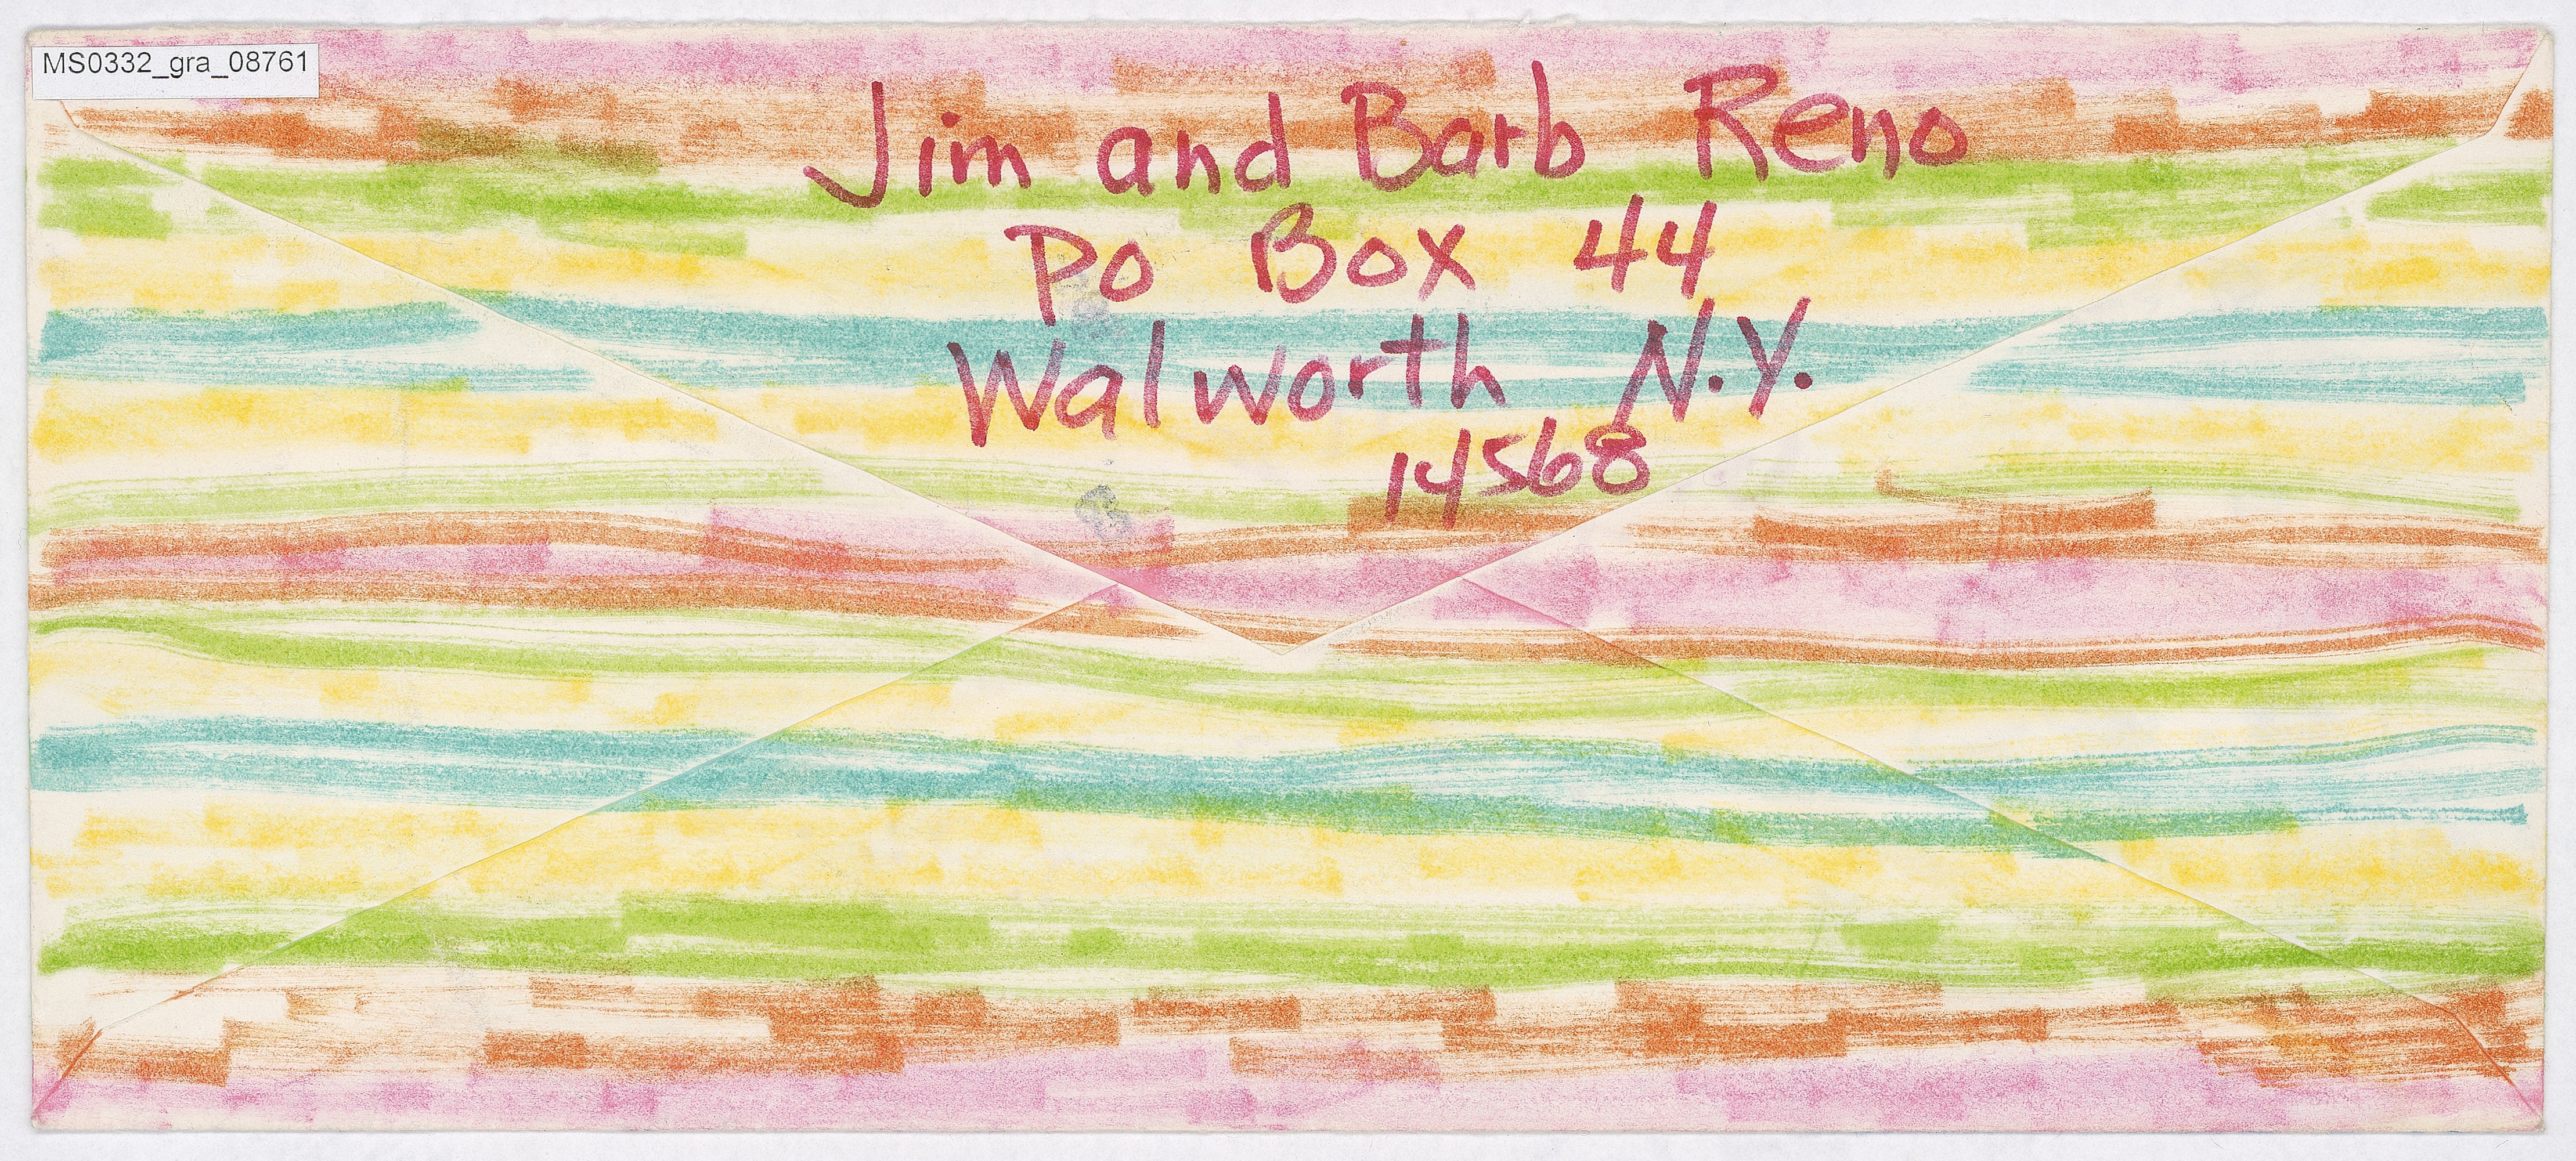 MS0332_gra_08761
Jim and Barb Reno
Po Box 44
Walworth N.Y.
14568